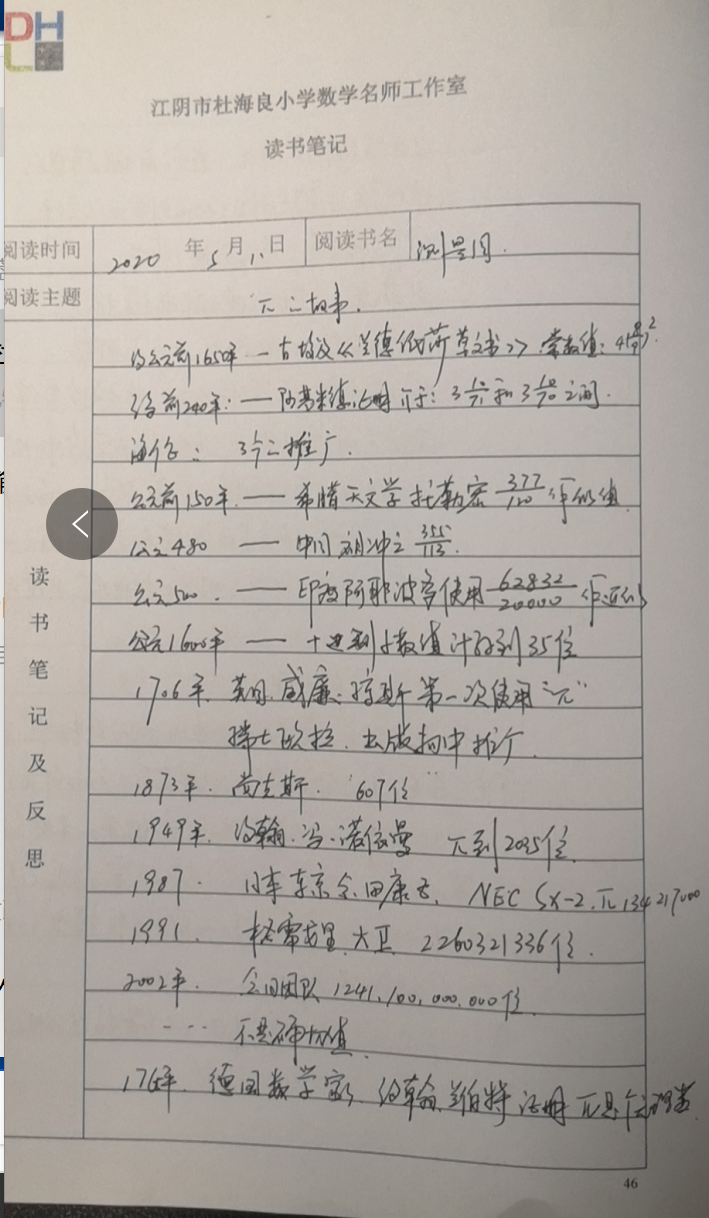 DH
L
江阴市杜海良小学数学名师工作室
读书笔记
阅读时间 2020 年 5 月 11 日 阅读书名 测量圆.
阅读主题 π之故事.
约公元前1650年 — 古埃及《兰德 草文书》 常数值: 4(8/9)²
公元前240年: — 阿基米德证明介于: 3 10/71 和 3 10/70 之间.
海伦: 3 1/7 之推广.
公元前150年. — 希腊天文学托勒密 377/120 作 值
公元480 — 中国 祖冲之 355/113.
公元500. — 印度阿耶波多使用 62832/20000 作近似
公元1600年 — 十进制小数值计算到35位
1706年. 英国.威廉.琼斯第一次使用"π"
瑞士欧拉.出版物中推广.
1873年. 尚克斯. 607位
1949年. 约翰.冯.诺依曼 π到2035位.
1987. 日本东京金田康正. NEC SX-2. π 134217000
1991. 格雷戈里.大卫 2260321336位.
2002年. 金田团队 1241,100,000,000位.
... 不是确切值.
176 年. 德国数学家 约翰.兰伯特 证明 π是个无理数
读书笔记及反思
46